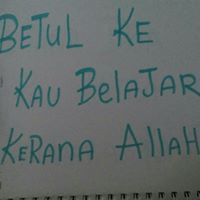 BETUL KE
KAU BELAJAR
KERANA ALLAH